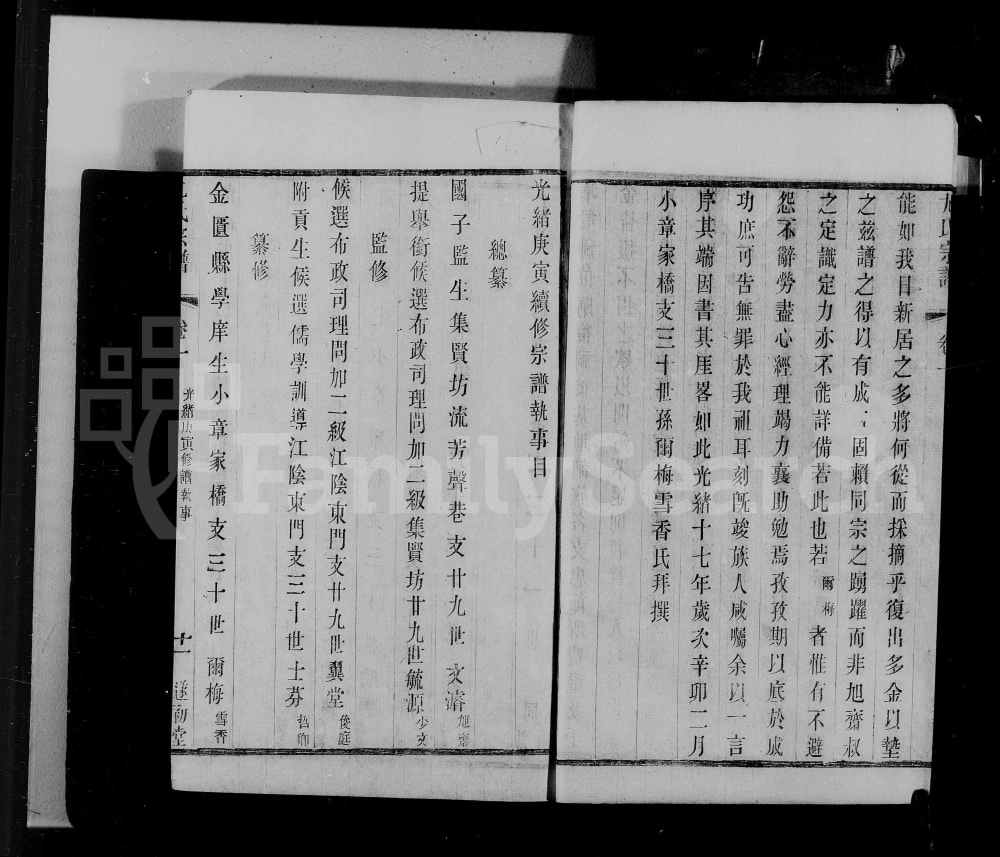 能如我目新居之多將何從而採摘乎復出多金以墊
之茲譜之得以有成固賴同宗之踴躍而非旭齋叔
之定識定力亦不能詳備若此也若爾梅者惟有不避
怨不辭勞盡心經理竭力襄助勉焉孜孜期以底於成
功庶可告無罪於我祖耳刻既竣族人咸囑余以一言
序其端因書其厓畧如此光緒十七年歲次辛卯二月
小章家橋支三十世孫爾梅雪香氏拜撰
宗譜
卷一
光緒庚寅續修宗譜執事目
總纂
國子監生集賢坊流芳聲巷支廿九世文濬旭齋
提舉銜候選布政司理問加二級集賢坊廿九世毓源少文
監修
候選布政司理問加二級江陰東門支廿九世翼堂俊庭
附貢生候選儒學訓導江陰東門支三十世士芬哲卿
纂修
金匱縣學庠生小章家橋支三十世爾梅雪香
氏宗譜
卷一
光緒庚寅修譜執事
廿一
遂初堂
FamilySearch